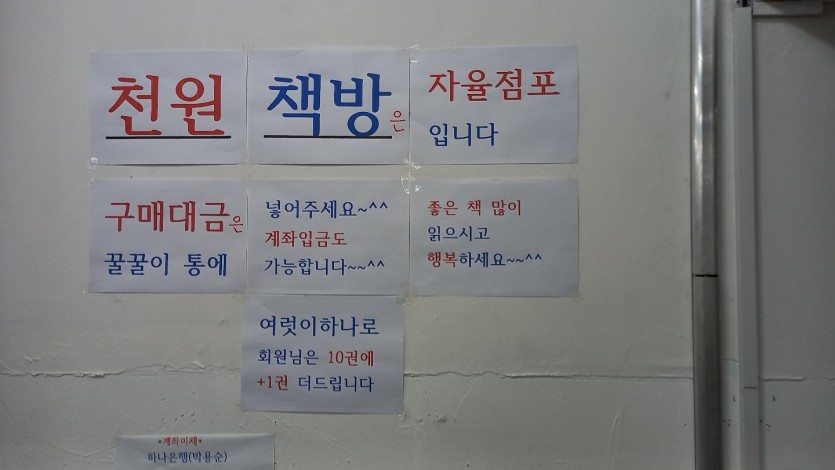 천원 책방은 자율점포
입니다
구매대금은
꿀꿀이 통에
넣어주세요~^^
계좌입금도
가능합니다~~^^
좋은 책 많이
읽으시고
행복하세요~~^^
여럿이하나로
회원님은 10권에
+1권 더드립니다
*계좌이체*
하나은행(박용순)